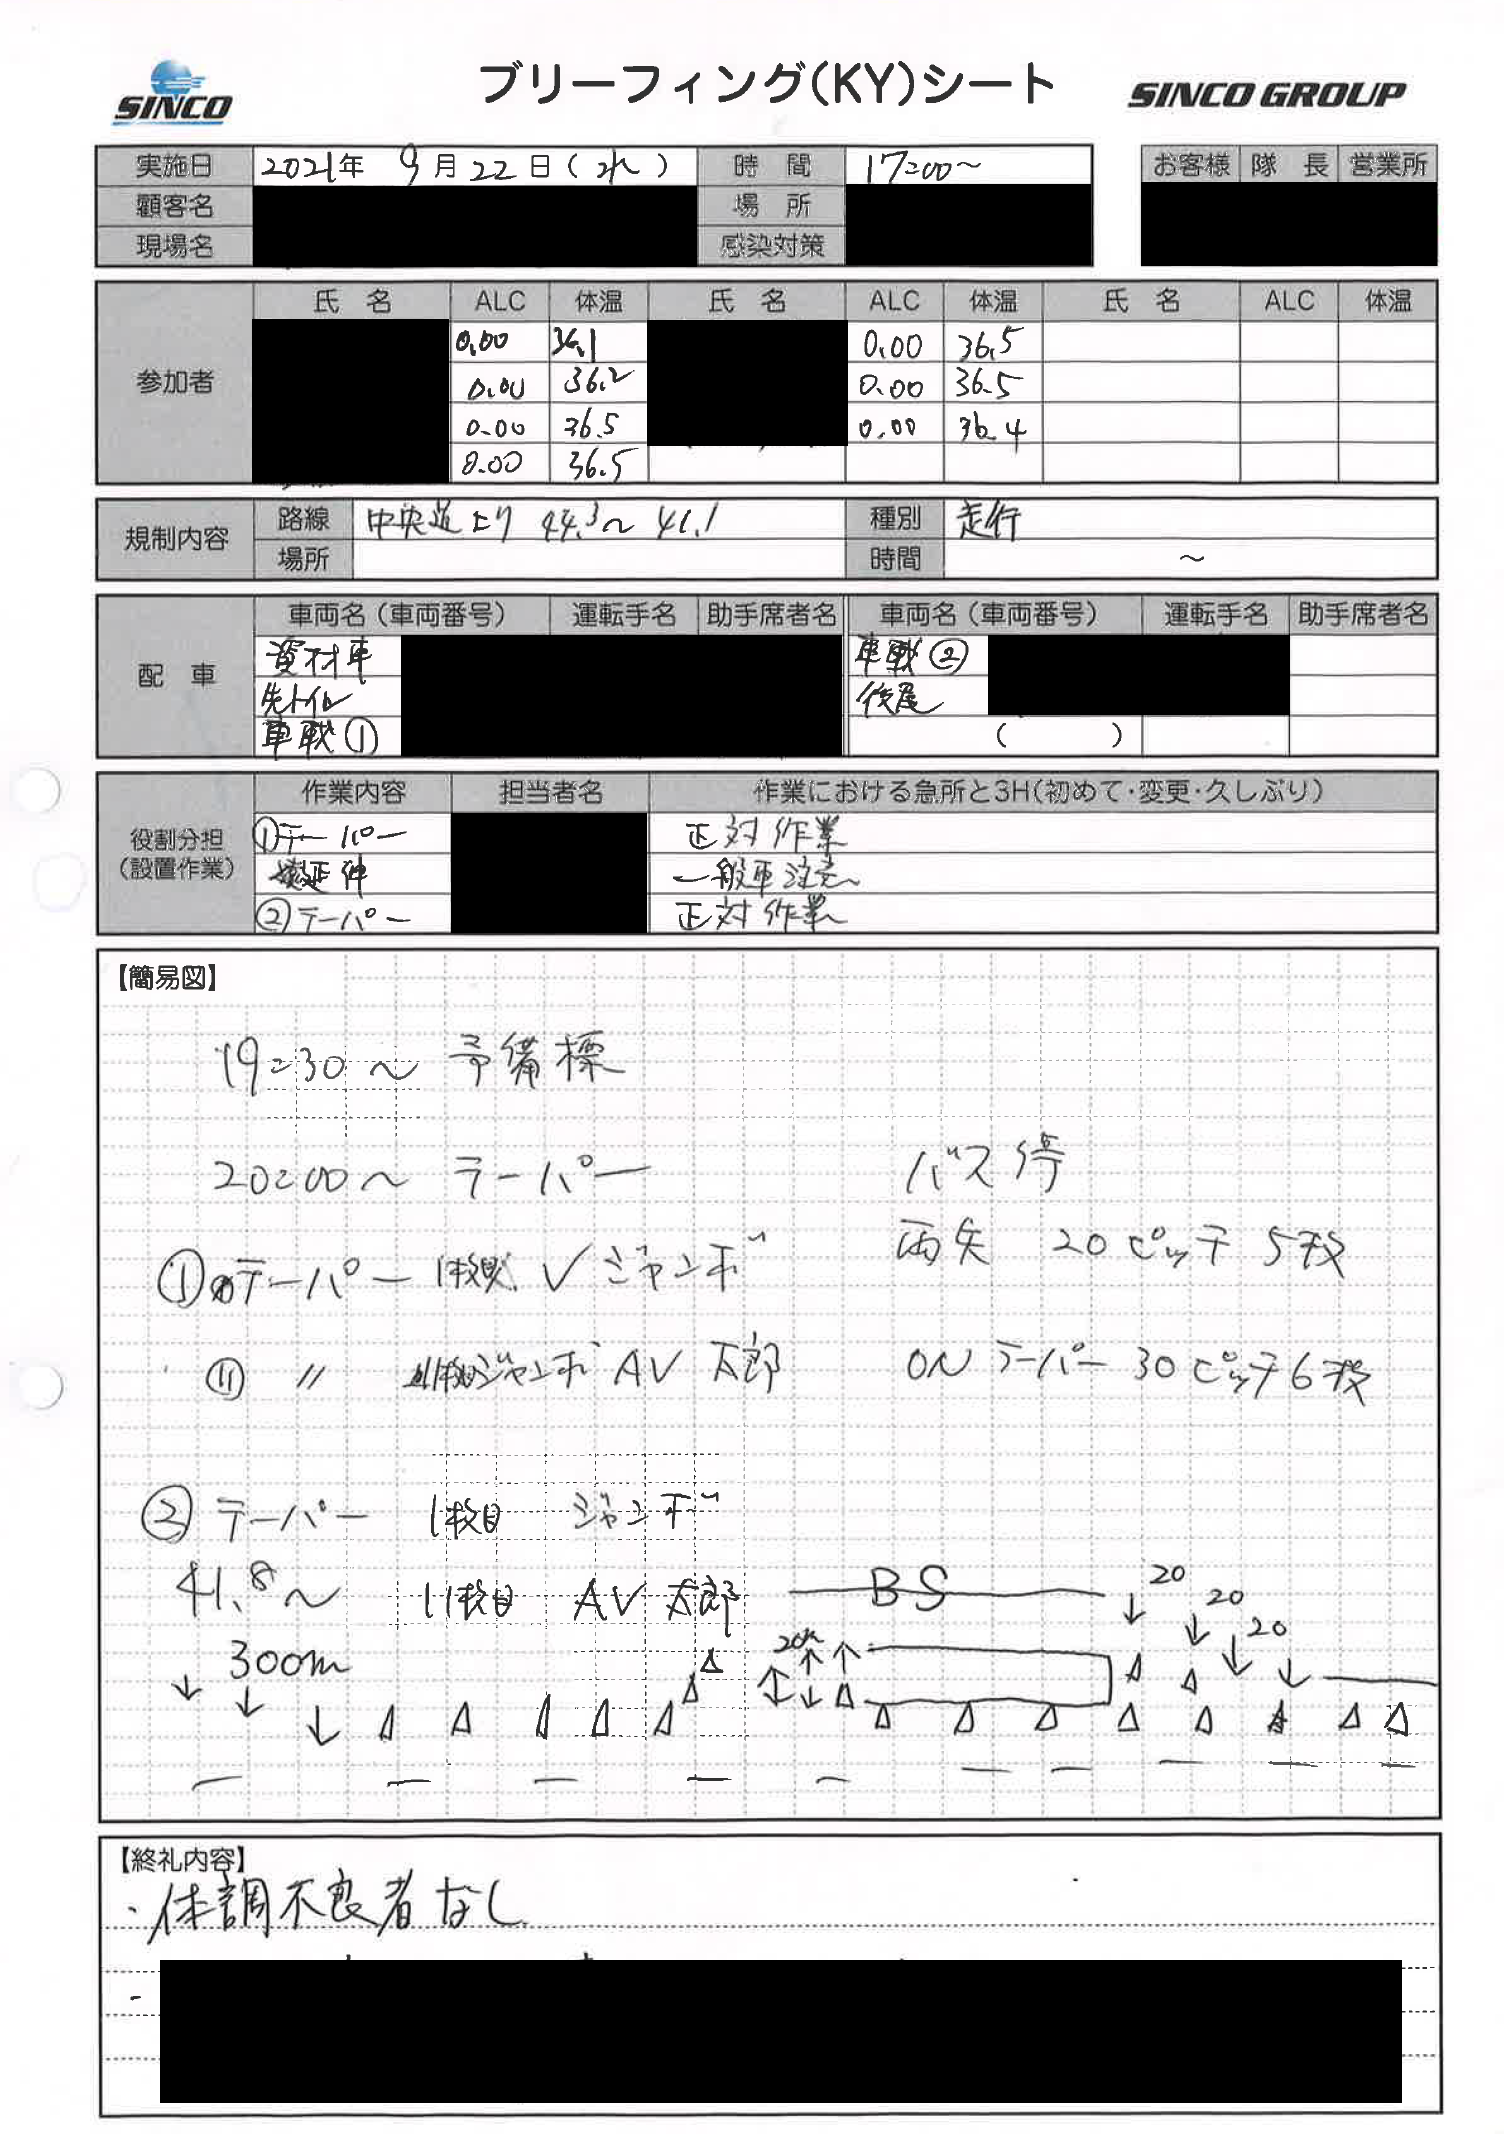 SINCO
ブリーフィング(KY)シート
SINCO GROUP
実施日 2021年 9月22日(水) 時間 17:00〜
お客様 隊長 営業所
顧客名 場所
現場名 感染対策
参加者
氏名 ALC 体温 氏名 ALC 体温 氏名 ALC 体温
0.00 36.1 0.00 36.5
0.00 36.2 0.00 36.5
0.00 36.5 0.00 36.4
0.00 36.5
規制内容
路線 中央道上り 44.3〜41.1 種別 走行
場所 時間 〜
配車
車両名(車両番号) 運転手名 助手席者名 車両名(車両番号) 運転手名 助手席者名
資材車 車載②
先トイレ 後尾
車載① ( )
役割分担
(設置作業)
作業内容 担当者名 作業における急所と3H(初めて・変更・久しぶり)
①テーパー 正対作業
延伸 一般車注意
②テーパー 正対作業
【簡易図】
19:30〜 予備標
20:00〜 テーパー バス停
両矢 20ピッチ 5枚
①テーパー ジャンボ
〃 ジャンボ AV 太郎 ONテーパー 30ピッチ 6枚
②テーパー 1枚目 ジャンボ
41.8〜 11枚目 AV 太郎 BS 20
20
20
300m 20m
【終礼内容】
・体調不良者なし